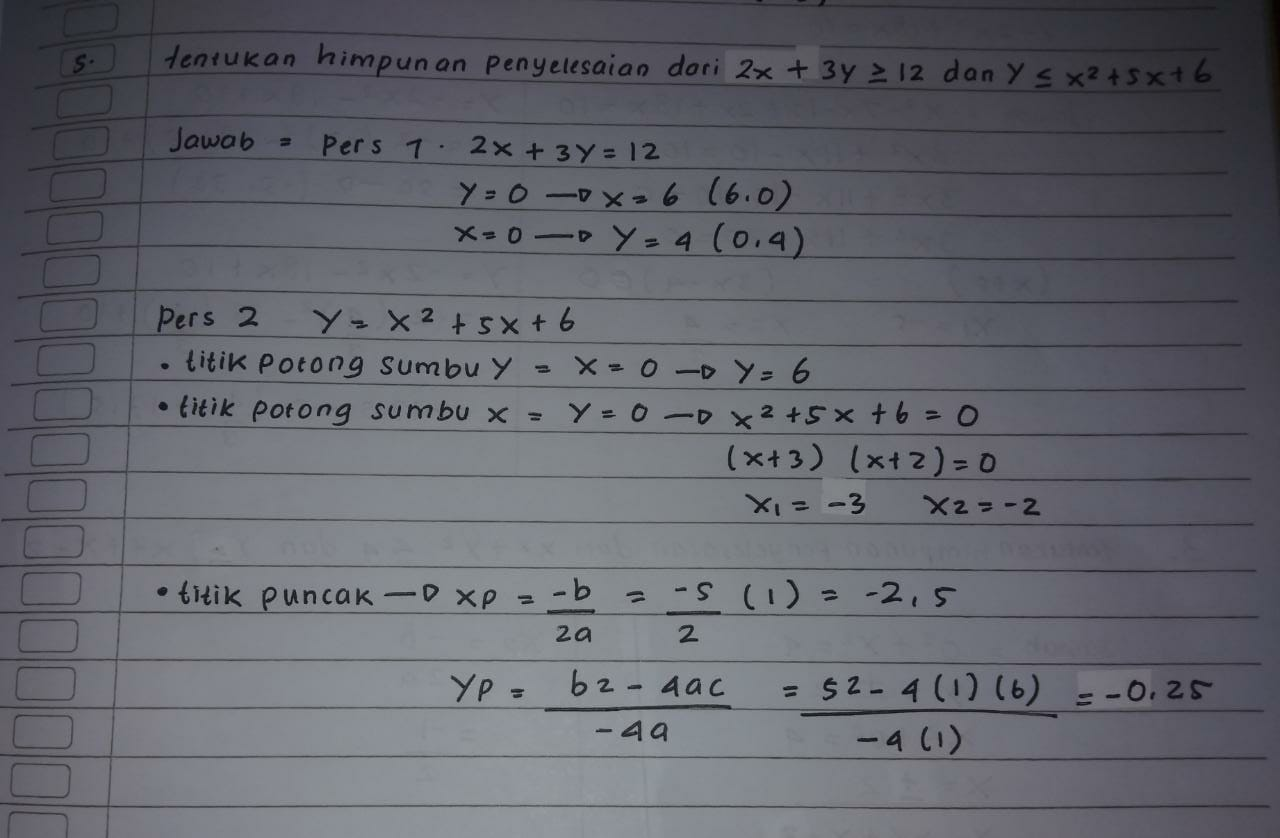 5. tentukan himpunan penyelesaian dari 2x + 3y ≥ 12 dan y ≤ x² + 5x + 6
Jawab = pers 1. 2x + 3y = 12
y = 0 → x = 6 (6.0)
x = 0 → y = 4 (0.4)
pers 2 y = x² + 5x + 6
• titik potong sumbu y = x = 0 → y = 6
• titik potong sumbu x = y = 0 → x² + 5x + 6 = 0
(x+3) (x+2) = 0
x₁ = -3 x2 = -2
• titik puncak → xp = -b/2a = -5/2 (1) = -2,5
yp = b2 - 4ac/-4a = 52 - 4(1)(6)/-4(1) = -0.25